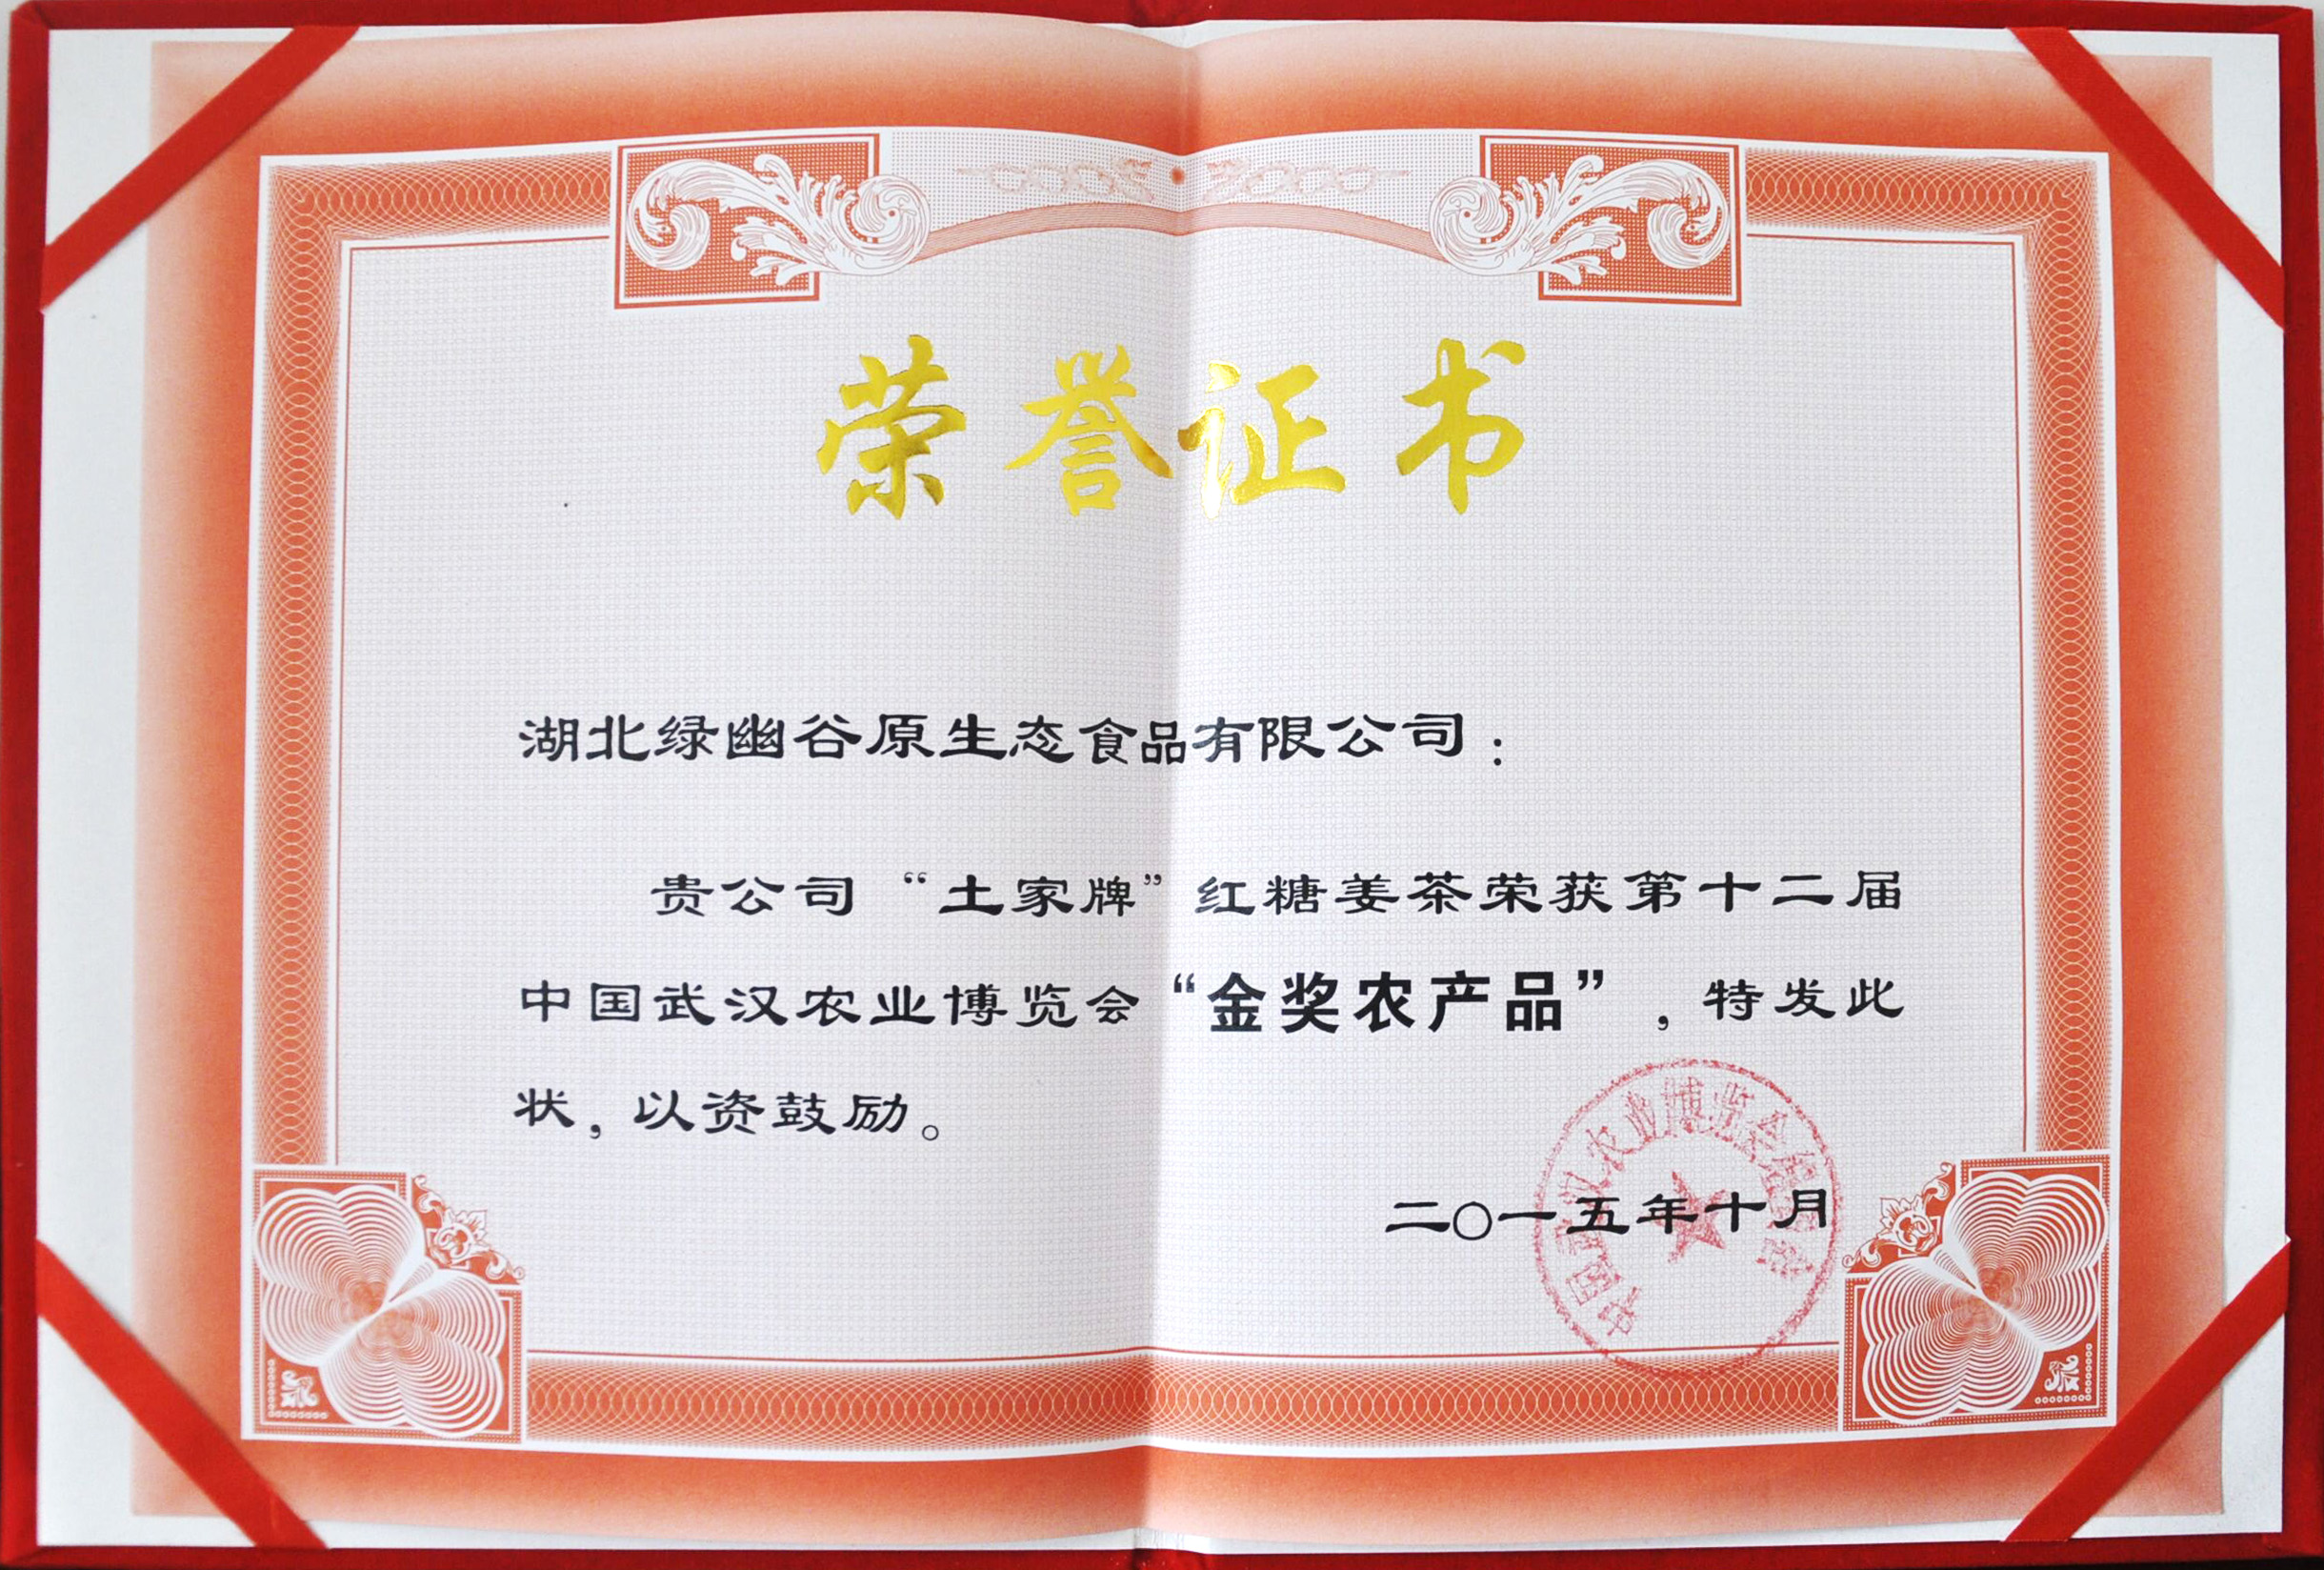 荣誉证书
湖北绿幽谷原生态食品有限公司：
贵公司“土家牌”红糖姜茶荣获第十二届
中国武汉农业博览会“金奖农产品”，特发此
状，以资鼓励。
二〇一五年十月
中国武汉农业博览会组委会